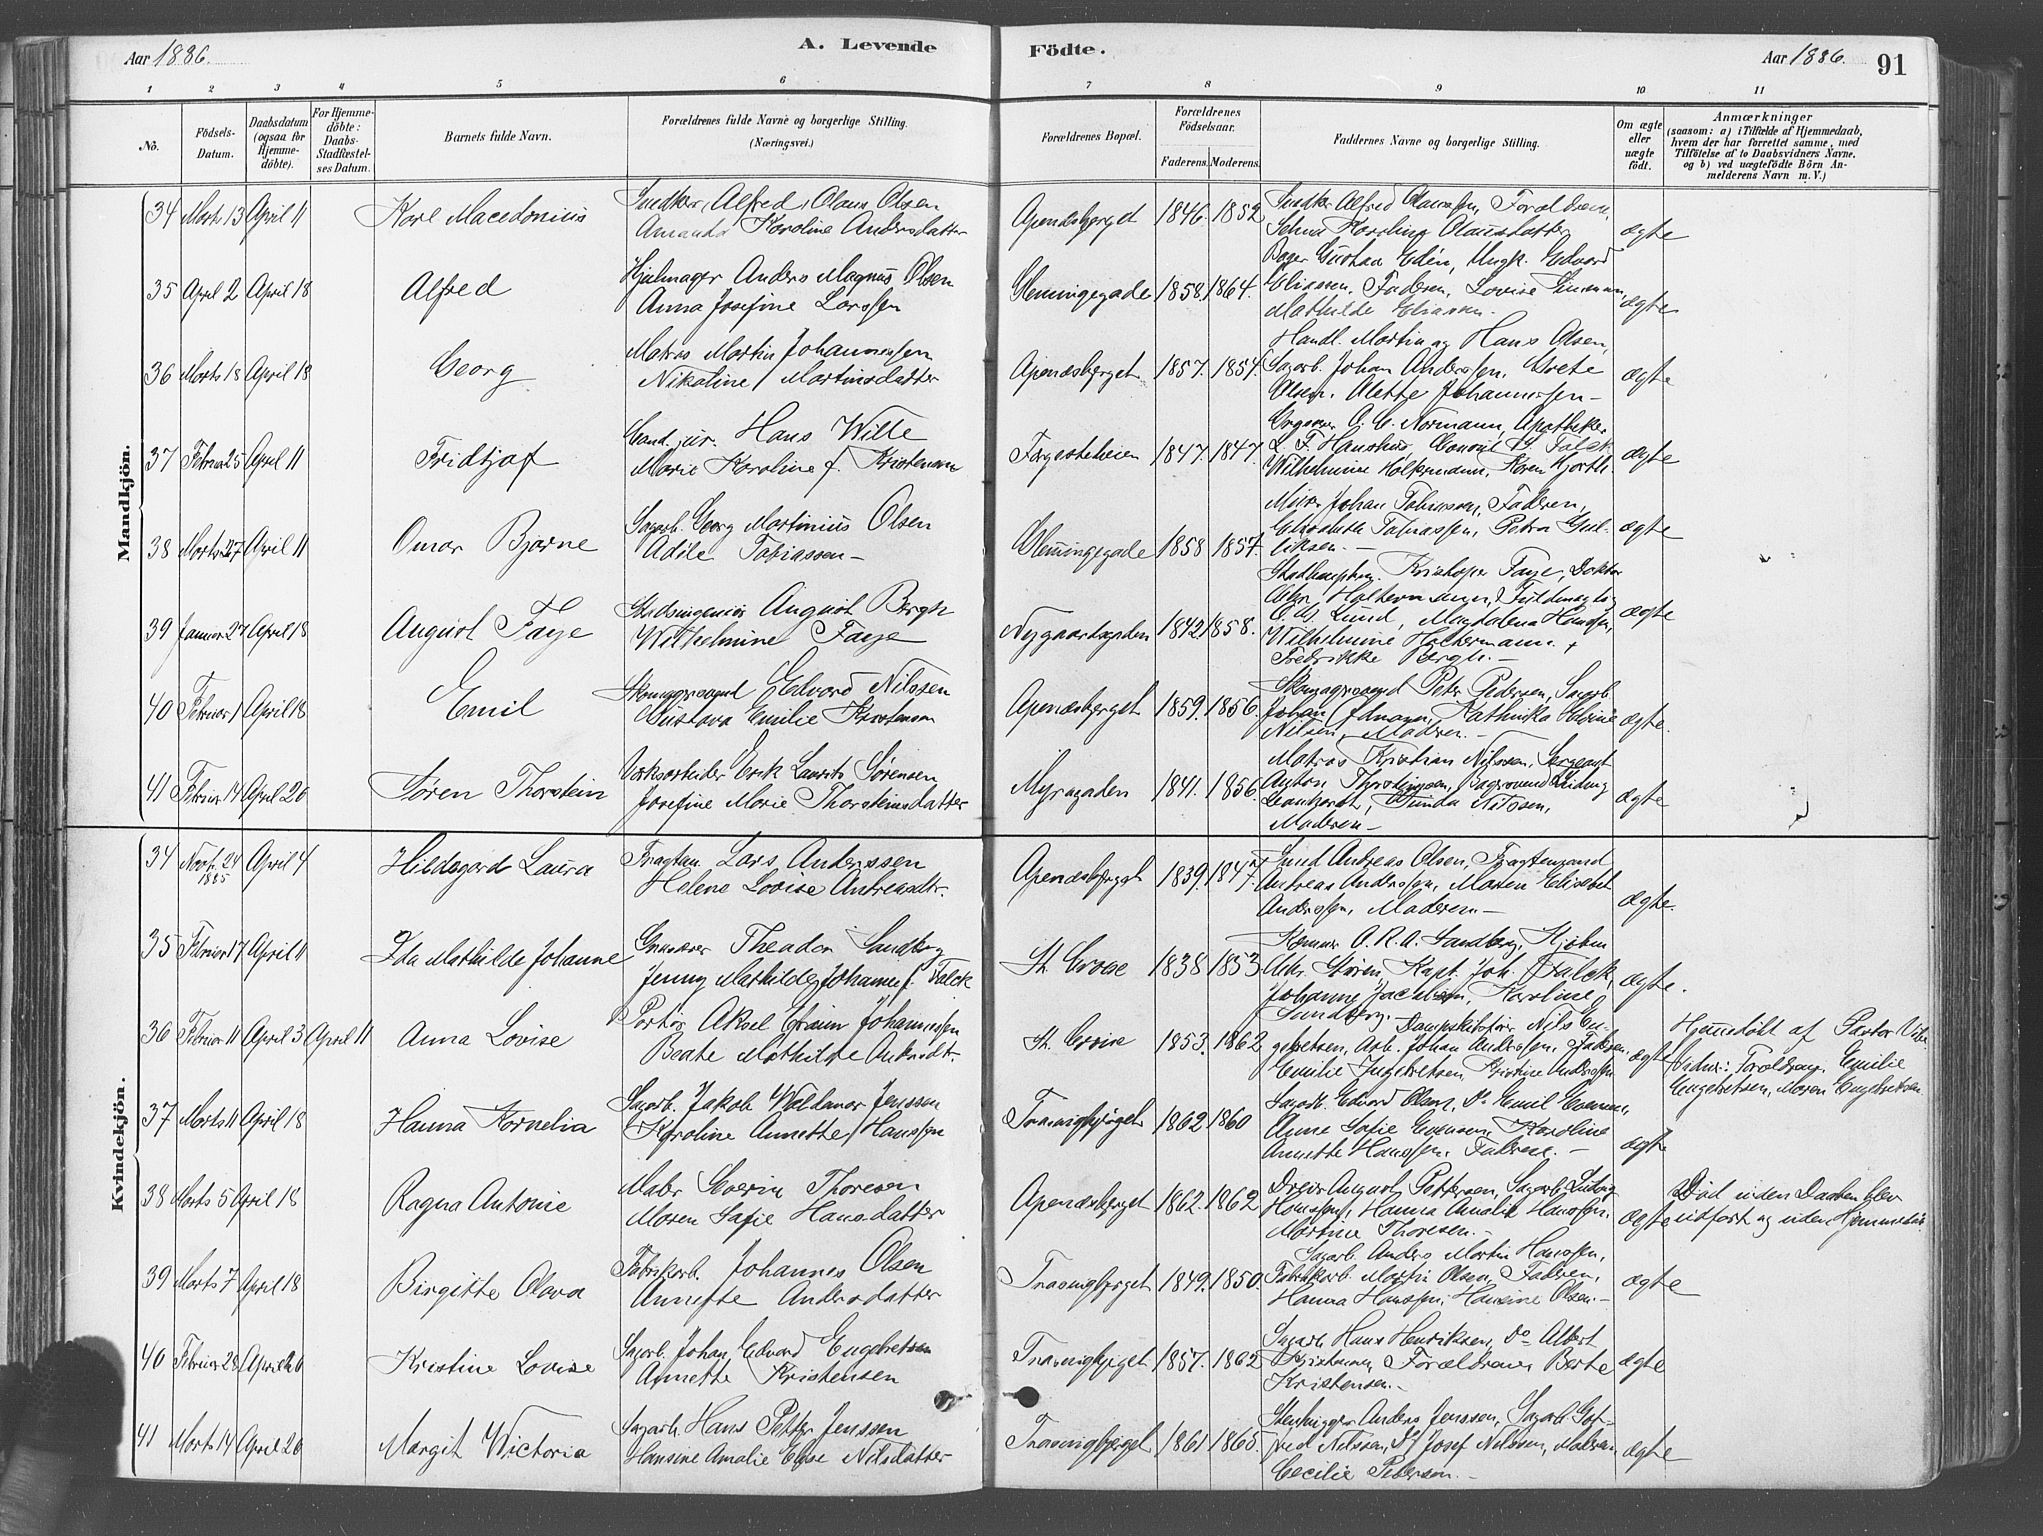 Aar 1886.
A. Levende
Födte.
Aar 1886.
91
1 2 3 4 5 6 7 8 9 10 11
No.
Födsels-Datum.
Daabsdatum (ogsaa for Hjemme-döbte).
For Hjemme-döbte: Daabs-Stadfæstel-ses Datum.
Barnets fulde Navn.
Forældrenes fulde Navne og borgerlige Stilling.
(Næringsvei.)
Forældrenes Bopæl.
Forældrenes Födselsaar.
Faderens. Moderens.
Faddernes Navne og borgerlige Stilling.
Om ægte eller uægte födt.
Anmærkninger
(saasom: a) i Tilfælde af Hjemmedaab,
hvem der har forrettet samme, med
Tilföielse af to Daabsvidners Navne,
og b) ved uægtefödte Börn An-
melderens Navn m. V.)
Mandkjön.
34 Marts 13 April 11 Karl Macedonius
Snedker Alfred Olaus Olsen
Amanda Karoline Andersdatter
Apenæsberget 1846. 1852
Snedker Alfred Olaussen, Forældrene,
Selma Karoline Olausdatter
ægte
35 April 2 April 18 Alfred
Hjulmager Anders Magnus Olsen
Anna Josefine Larssen
Glemmingegade 1858. 1864.
Bager Gustav Edén, Ungk. Edvard
Eliassen, Faderen, Lovise
Mathilde Eliassen.
ægte
36 Marts 18 April 18 Georg
Matros Martin Johannessen
Nikoline Martinsdatter
Apenæsberget 1857. 1854.
Handl. Martin og Hans Olsen,
Sagarb. Johan Anderssen, Grete
Olsen, Alette Johannessen
ægte
37 Februar 25 April 11 Fridtjof
Cand. jur. Hans Wille
Marie Karoline f. Kristensen
Færgestedveien 1847. 1847.
O. C. Normann, Apotheker
L. F. Consul Falck
Wilhelmine Holtermann, Karen Hjorth
ægte
38 Marts 27 April 11 Omar Bjarne
Sagarb. Georg Martinius Olsen
Adile Tobiassen
Glemmingegade 1858 1857.
Murer Johan Tobiassen, Faderen,
Elisabeth Tobiassen, Petra Gul-
liksen.
ægte
39 Januar 27 April 18 August Faye
Stadsingeniör August Bergh
Wilhelmine Faye
Nygaardsgaden 1842 1858.
Stadhauptm. Kristoper Faye, Doktor
Holtermann,
Lund, Magdalena Hanssen,
Wilhelmine Holtermann,
Fredrikke Bergh.
ægte
40 Februar 1 April 18 Emil
Skomagersvend Edvard Nilssen
Gustava Emilie Karstensen
Apenæsberget 1859. 1856.
Skomagersvend Peter Pedersen, Sagarb.
Johan Kathinka
Nilsen, Moderen.
ægte.
41 Februar 14 April 26 Sören Thorstein
Værksarbeider Erik Laurits Sörensen
Josefine Marie Thorsteinsdatter
Myragaden 1841. 1856.
Matros Kristian Nilssen, Sergeant
Anton Thorsteinsen, Bagersvend Ludvig
Gunda Nilssen,
Moderen
ægte
Kvindekjön.
34 Novb. 24 1885 April 4 Hildegard Laura
Fragtm. Lars Anderssen
Helene Lovise Andreasdtr.
Apenæsberget 1839. 1847.
Smed Andreas Olsen, Fragtemand
Andreas Anderssen, Maren Elisabet
Anderssen, Moderen
ægte.
35 Februar 17 April 11 Ida Mathilde Johanne
Theodor Sandberg
Jenny Mathilde Johanne f. Falck
St. Croix 1838 1853
Kæmner O. R. A. Sandberg, Kjöbm.
Stören, Kapt. Joh. Falck,
Johanne Karoline
Sandberg.
ægte.
36 Februar 11 April 3 April 11 Anna Lovise
Portör Aksel Efraim Johannessen
Beate Mathilde
St. Croix 1853. 1862
Dampskibsförer Nils En-
gebretsen, Arb. Johan Anderssen, Faderen,
Emilie Engebretsen, Kristine Anderssen
ægte
Hjemmedöbt af Pastor
Vidner: Forældrene, Emilie
Engebretsen, Maren Engebretsen
37 Marts 11 April 18 Hanna Kornelia
Sagarb. Jakob Waldemar Jenssen
Karoline Annette Hanssen
Trasnigberget 1862 1860
Sagarb. Edvard Olsen, Do Emil Evensen,
Anne Sofie Evensen, Karoline
Annette Hanssen, Faderen.
ægte
38 Marts 5 April 18 Ragna Antonie
Matr. Severin Thoresen
Maren Sofie Hansdatter
Apenæsberget 1862. 1862
Dreier August Pettersen, Sagarb. Ludvig
Hanssen, Hanna Amalie Hanssen,
Martine Thoresen.
ægte
Död inden Daaben blev
udfört og uden Hjemmedaab
39 Marts 7 April 18 Birgitte Olava
Fabrikarb. Johannes Olsen
Annette Andersdatter
Trasnigberget 1849. 1850.
Sagarb. Anders Martin Hanssen,
Fabrikarb. Martin Olsen, Faderen,
Hanna Hanssen, Hansine Olsen.
ægte
40 Februar 28 April 26 Kristine Lovise
Sagarb. Johan Edvard Engebretsen
Annette Kristensen
Trasnigberget 1857. 1862
Sagarb. Hans Henriksen, Do Albert
Kristensen, Forældrene, Berte
Kristensen.
ægte
41 Marts 14 April 26 Margit Victoria
Sagarb. Hans Petter Jenssen
Hansine Amalie Else Nilsdatter
Trasnigberget 1861 1865.
Stenhugger Anders Jenssen, Sagarb. Got-
fred Nilssen, Do Josef Nilssen, Moderen,
Cecilie Petersen.
ægte